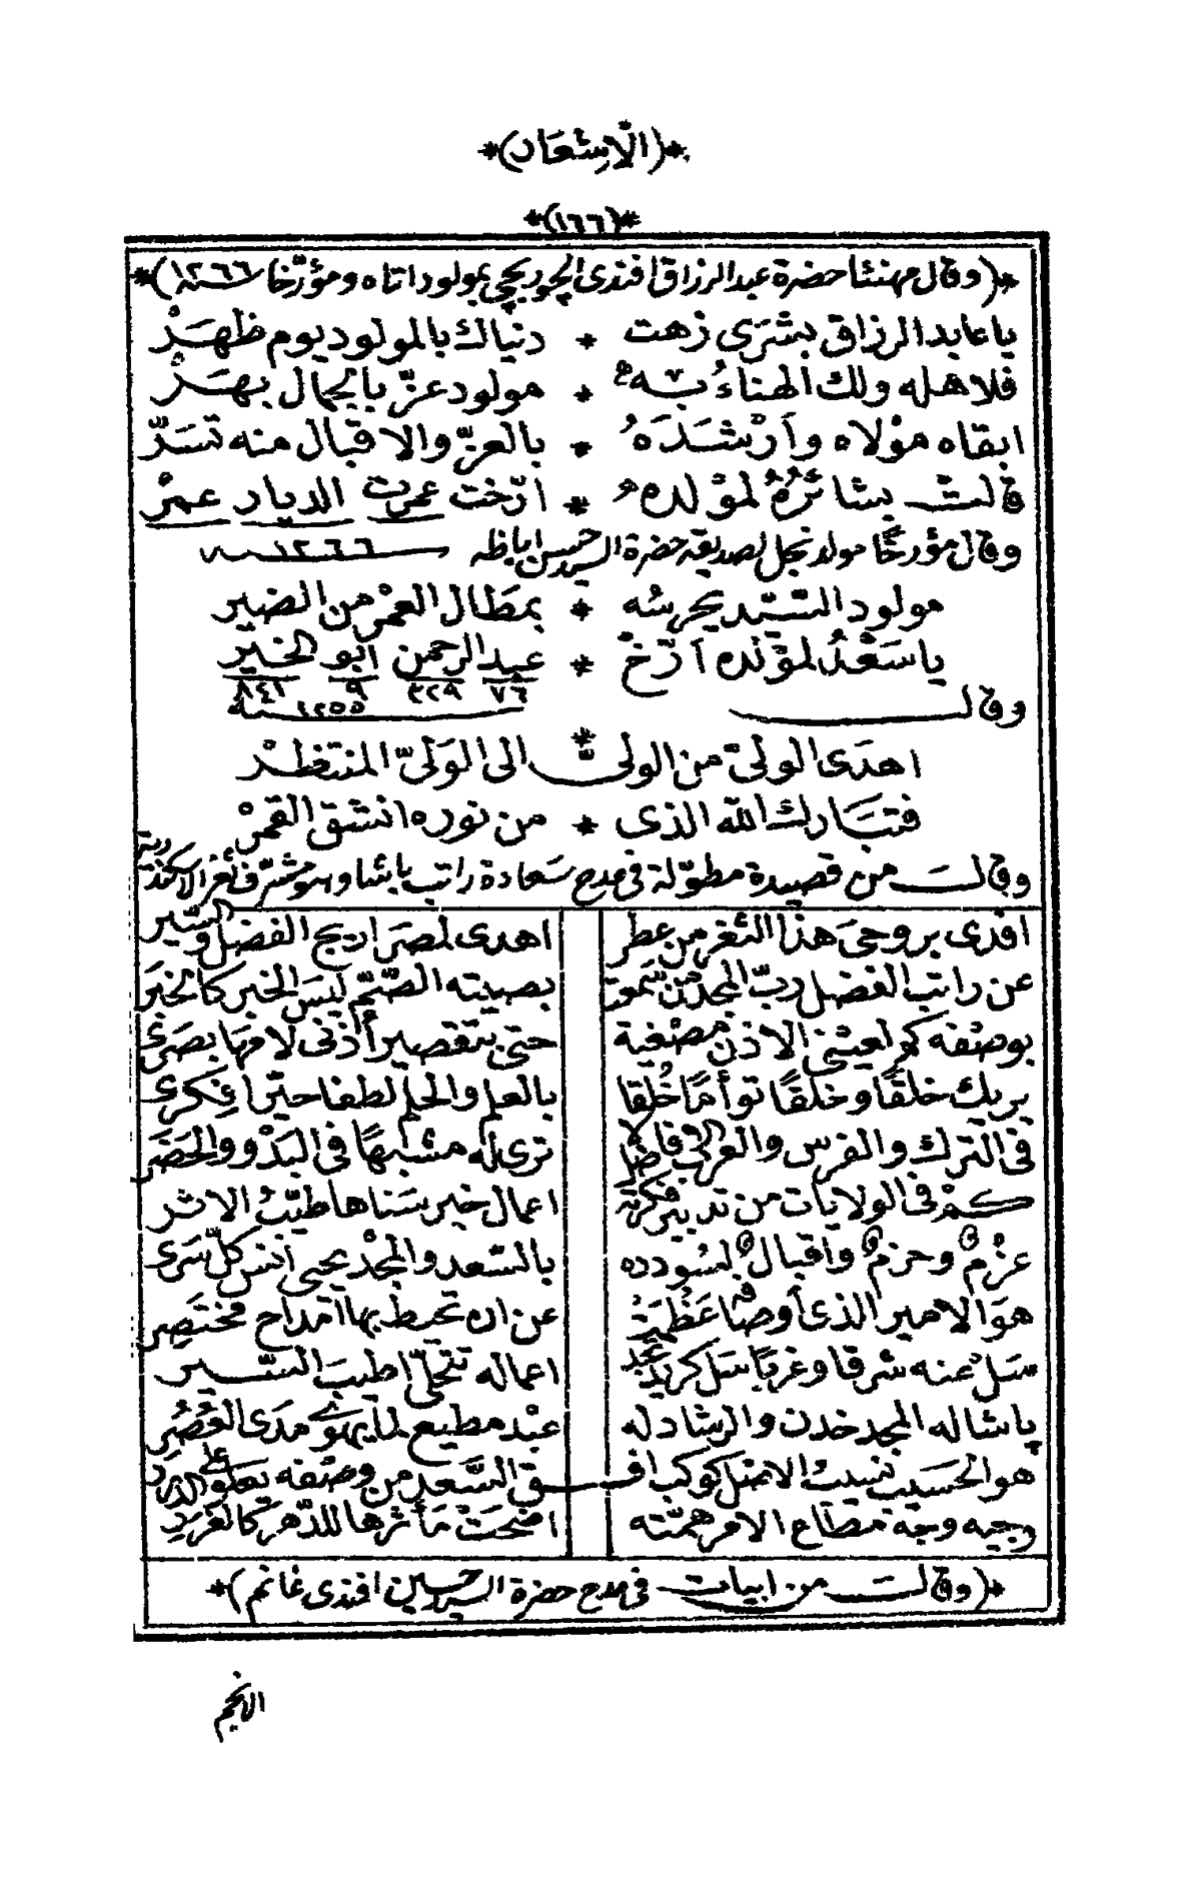 *(الاشعار)*
*(١٦٦)*
*(وقال مهنئا حضرة عبد الرزاق افندى الچوربجى بمولود اتاه ومؤرّخا سنة ١٢٦٦)*
يا عابد الرزاق بشرى زهت * دنياك بالمولود يوم ظهَرْ
فلاهله ولك الهناءُ به * مولود عزّ بالجمال بهَرْ
ابقاه مولاه وأرْشدَهُ * بالعزّ والاقبال منه تسَرّ
قالت بشائرُهُ لمولده * ارّخت عمرت الديار عمرْ
وقال مؤرخًا مولد نجل لصديقه حضرة السيد حسن اباظه سنة ١٢٦٦
مولود السّيّد يحرسُه * بمطال العمْر من الضير
يا سَعْدُ لمولده أرّخْ * عبد الرحمن ابو الخير
٧٦ ٣٢٩ ٩ ٨٤١
وقال سنة ١٢٥٥
اهدَى الولىّ من الولىّ * الى الوَلىّ المنتظرْ
فتبَارك الله الذى * من نوره انشق القمرْ
وقال من قصيدة مطوّلة فى مدح سَعادة راتب باشا وهو مشرّف ثغر الاسكندرية
افدى بروحىَ هذا الثغر من عطر اهدى لمصرَ اريج الفضل والسّير
عن راتب الفضل ربّ المجد من سَمعَت بصيته الصّمّ ليسَ الخبر كالخبَر
بوصْفه كم لعينى الاذن مصْغية حتى بتقصير أذنى لامهَا بصَرى
يريك خلقًا وخلقًا توأمًا خُلقا بالعلم والحلم لطفا حيّرا فِكرى
فى الترك والفرس والعرب فاضلا ترى له مشبهًا فى البَدْو والحَضَر
كمْ فى الولايات من تدبير فكرته اعمال خير سَناها طيّبُ الاثر
عزْمٌ وحزمٌ واقبالٌ لسُودده بالسّعد والمجْد يحيى أنسَ كلّ سَرى
هوَ الامير الذى أوصافه عَظُمَتْ عن ان تحيط بها امداح مختَصِر
سَلْ عنه شرقا وغربًا سَل كريد تجد اعماله تتحلّى اطيبَ السّير
پاشا له المجد خدن والرشاد له عبْد مطيع لما يهوَى مدَى العُصُر
هو الحَسيب نسيبُ الاصْل كوكب افـ ـق السَّعد من وصْفه تعلو على الدرر
وجيه وجه مطاع الامر همّته اضحَتْ مَآثرها للدّهر كالغُرَرِ
*(وقال من ابيات فى مدح حضرة السيد حسين افندى غانم)*
الانجم